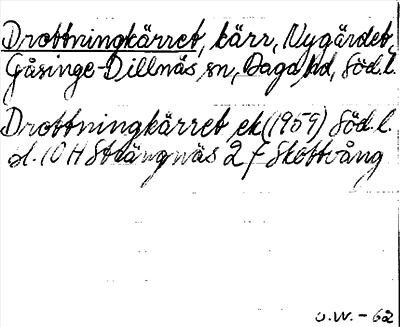 Drottningkärret, kärr, Nygärdet,
Gåsinge-Dillnäs sn, Daga hd, Söd.l.
Drottningkärret ek (1959) Söd.l.
bl. 10 H Strängnäs 2 f Skottvång
O.W. - 62